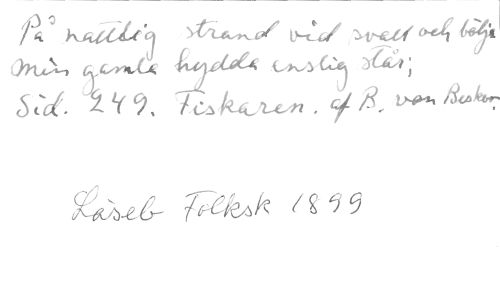 På nattlig strand vid svall och bölja
min gamla hydda enslig står;
Sid. 249. Fiskaren. af B. von Beskow.
Läseb Folksk 1899